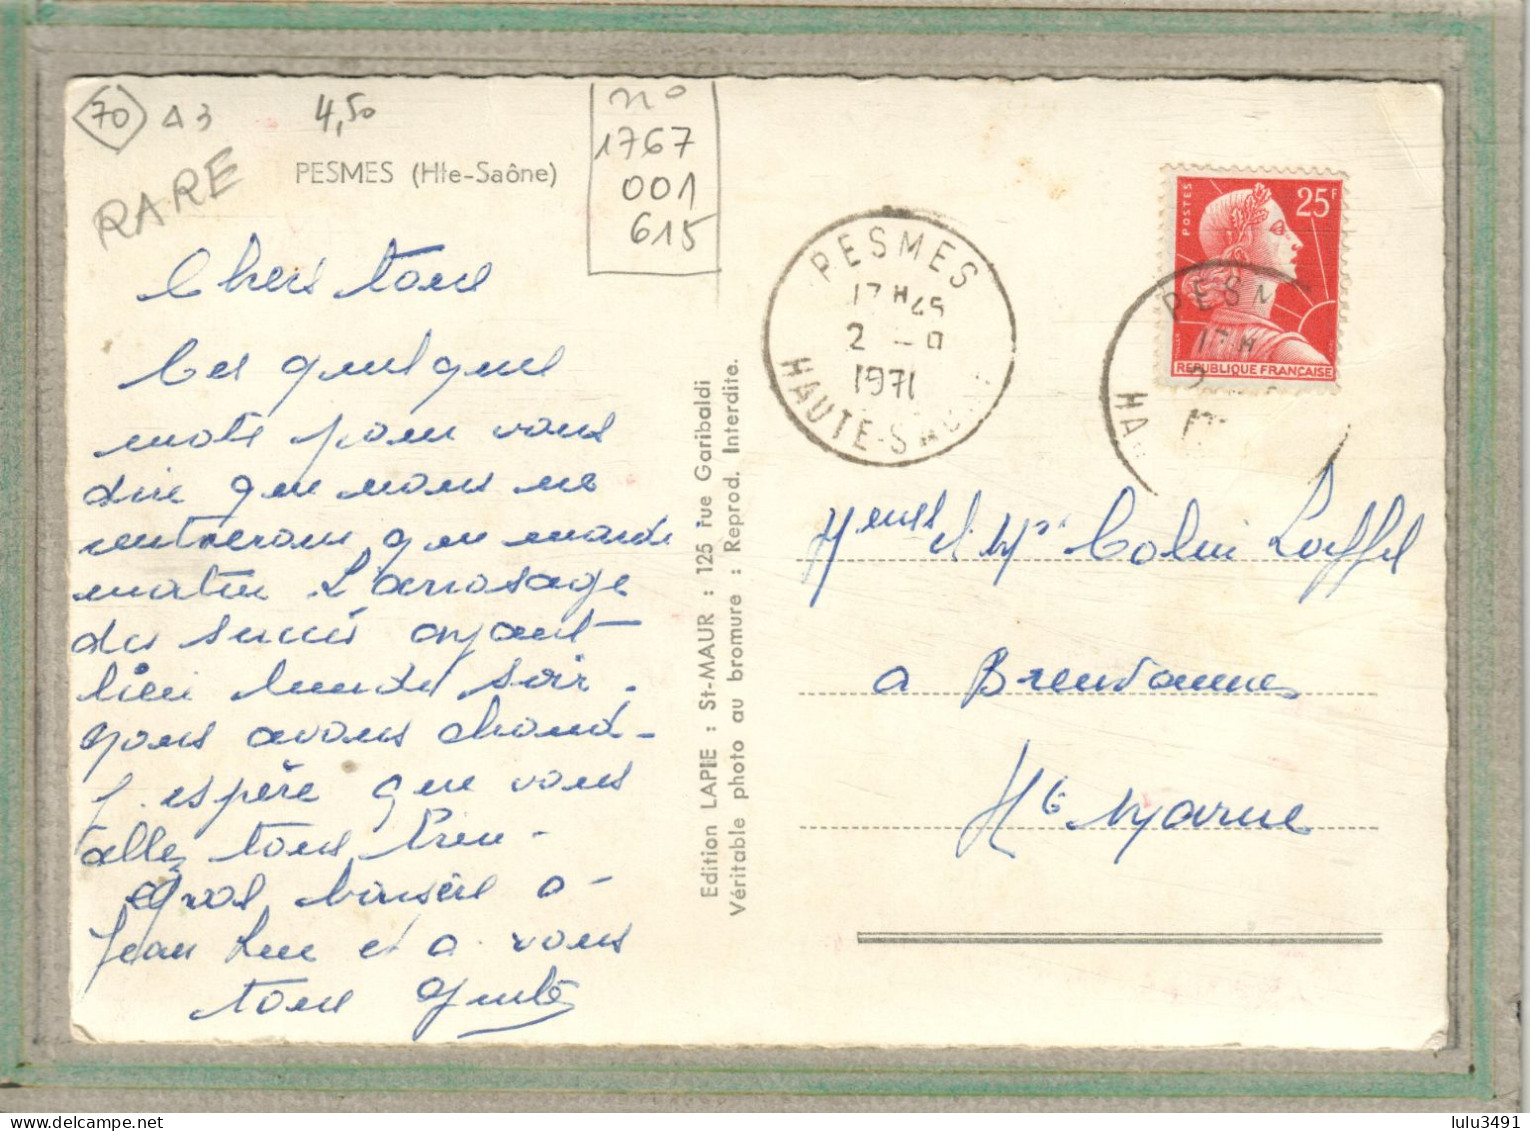 70
A3
4,50
RARE
n°
1767
001
615
PESMES (Hte-Saône)
Chers tous
Ces quelques
mots pour vous
dire que nous ne
rentrerons que mardi
matin L'arrosage
du succès ayant
lieu lundi soir.
nous avons chaud -
J. espère que vous
allez tous bien -
Gros à -
Jean Luc et a vous
tous
Edition LAPIE : St-MAUR : 125 rue Garibaldi
Véritable photo au bromure : Reprod. Interdite.
PESMES
17H45
2 -
1971
HAUTE-SAO
POSTES
25F
REPUBLIQUE FRANÇAISE
PESM
17H
HA
et Mr Colin
a
Hte Marne
lulu3491